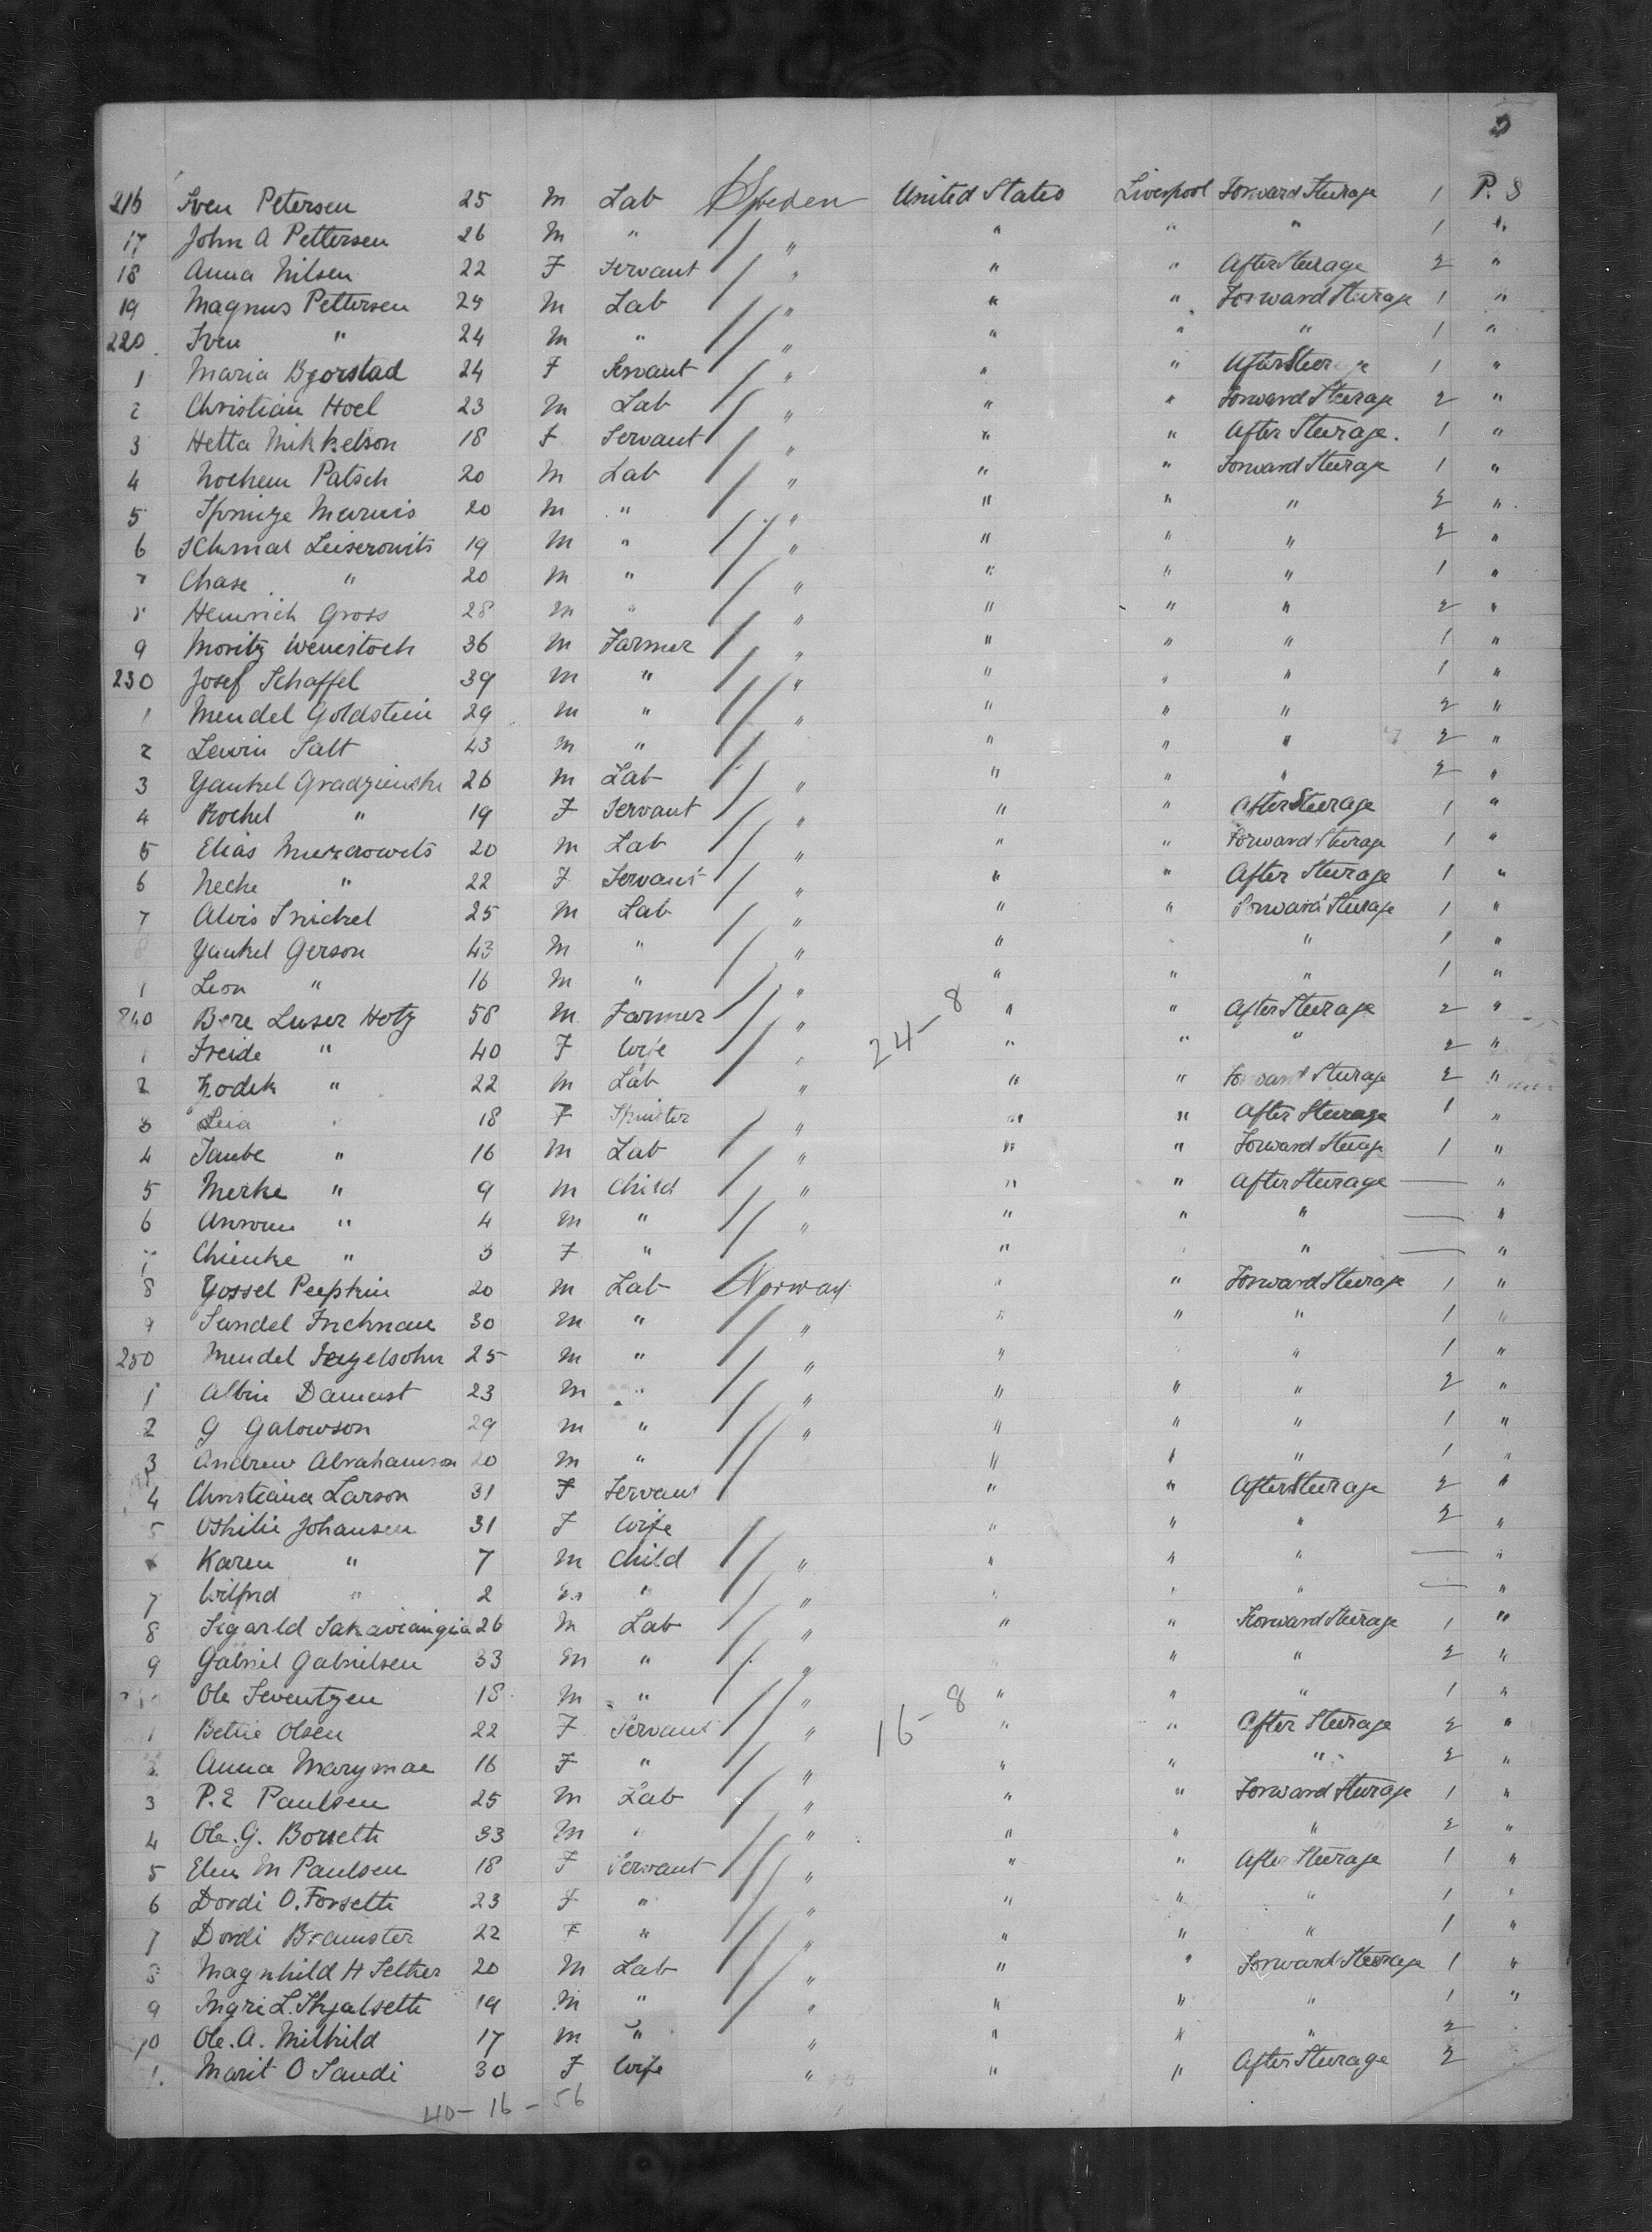 216 Sven Petersen 25 M Lab Sweden United States Liverpool Forward Steerage 1 P. S
17 John A Pettersen 26 M " " " " " 1 "
18 Anna Nilsen 22 F Servant " " " After Steerage 2 "
19 Magnus Pettersen 24 M Lab " " " Forward Steerage 1 "
220 Sven " 24 M " " " " " 1 "
1 Maria Bjorstad 24 F Servant " " " After Steerage 1 "
2 Christian Hoel 23 M Lab " " " Forward Steerage 2 "
3 Hetta Mikkelson 18 F Servant " " " After Steerage. 1 "
4 Nochem Patsch 20 M Lab " " " Forward Steerage 1 "
5 20 M " " " " " 2 "
6 Schmal Leiserowits 19 M " " " " " 2 "
7 Chase " 20 M " " " " " 1 "
8 Heinrich Gross 28 M " " " " " 2 "
9 Moritz 36 M Farmer " " " " 1 "
230 Josef Schaffel 39 M " " " " " 1 "
1 Mendel Goldstein 29 M " " " " " 2 "
2 Lewin Salt 43 M " " " " 2 "
3 Yankel Gradzienski 26 M Lab " " " " 2 "
4 Rochel " 19 F Servant " " " After Steerage 1 "
5 Elias 20 M Lab " " " Forward Steerage 1 "
6 Neche " 22 F Servant " " " After Steerage 1 "
7 Alois Snickel 25 M Lab " " " Forward Steerage 1 "
8 Yankel Gerson 43 M " " " " 1 "
1 Leon " 16 M " " " " " 1 "
240 Bere Luser Hotz 58 M Farmer " 24-8 " " After Steerage 2 "
1 Freide " 40 F Wife " " " " 2 "
2 Zodek " 22 M Lab " " " Forward Steerage 2 "
3 Leia " 18 F Spinster " " " After Steerage 1 "
4 Taube " 16 M Lab " " " Forward Steerage 1 "
5 Merke " 9 M Child " " " After Steerage — "
6 " 4 M " " " " " — "
7 Chienke " 3 F " " " " — "
8 Yossel Peepkin 20 M Lab Norway " " Forward Steerage 1 "
9 Sandel 30 M " " " " " 1 "
250 Mendel Segelsohn 25 M " " " " 1 "
1 Albin Damast 23 M " " " " " 2 "
2 G Galowson 29 M " " " " " 1 "
3 Andrew Abrahamson 20 M " " " " 1 "
4 Christiana Larson 31 F Servant " " After Steerage 2 "
5 Othilie Johansen 31 F Wife " " " 2 "
6 Karen " 7 M Child " " " " — "
7 Wilfrid " 2 M " " " " " — "
8 Sigarld 26 M Lab " " " Forward Steerage 1 "
9 Gabriel Gabrielsen 33 M " " " " 2 "
260 Ole Seventzen 18 M " " 16-8 " " " 1 "
1 Bettie Olsen 22 F Servant " " " After Steerage 2 "
2 Anna Marymae 16 F " " " " " 2 "
3 P. E Paulsen 25 M Lab " " " Forward Steerage 1 "
4 Ole. G. Borseth 33 M " " " " " 2 "
5 Elen M Paulsen 18 F Servant " " " After Steerage 1 "
6 Dordi O. Forseth 23 F " " " " " 1 "
7 Dordi Bramster 22 F " " " " " 1 "
8 Magnhild H Selther 20 M Lab " " " Forward Steerage 1 "
9 Ingri L. Skjalseth 19 M " " " " " 1 "
70 Ole. A. Milhild 17 M " " " " " 2
1. Marit O Sandi 30 F Wife " " " After Steerage 2
40-16-56